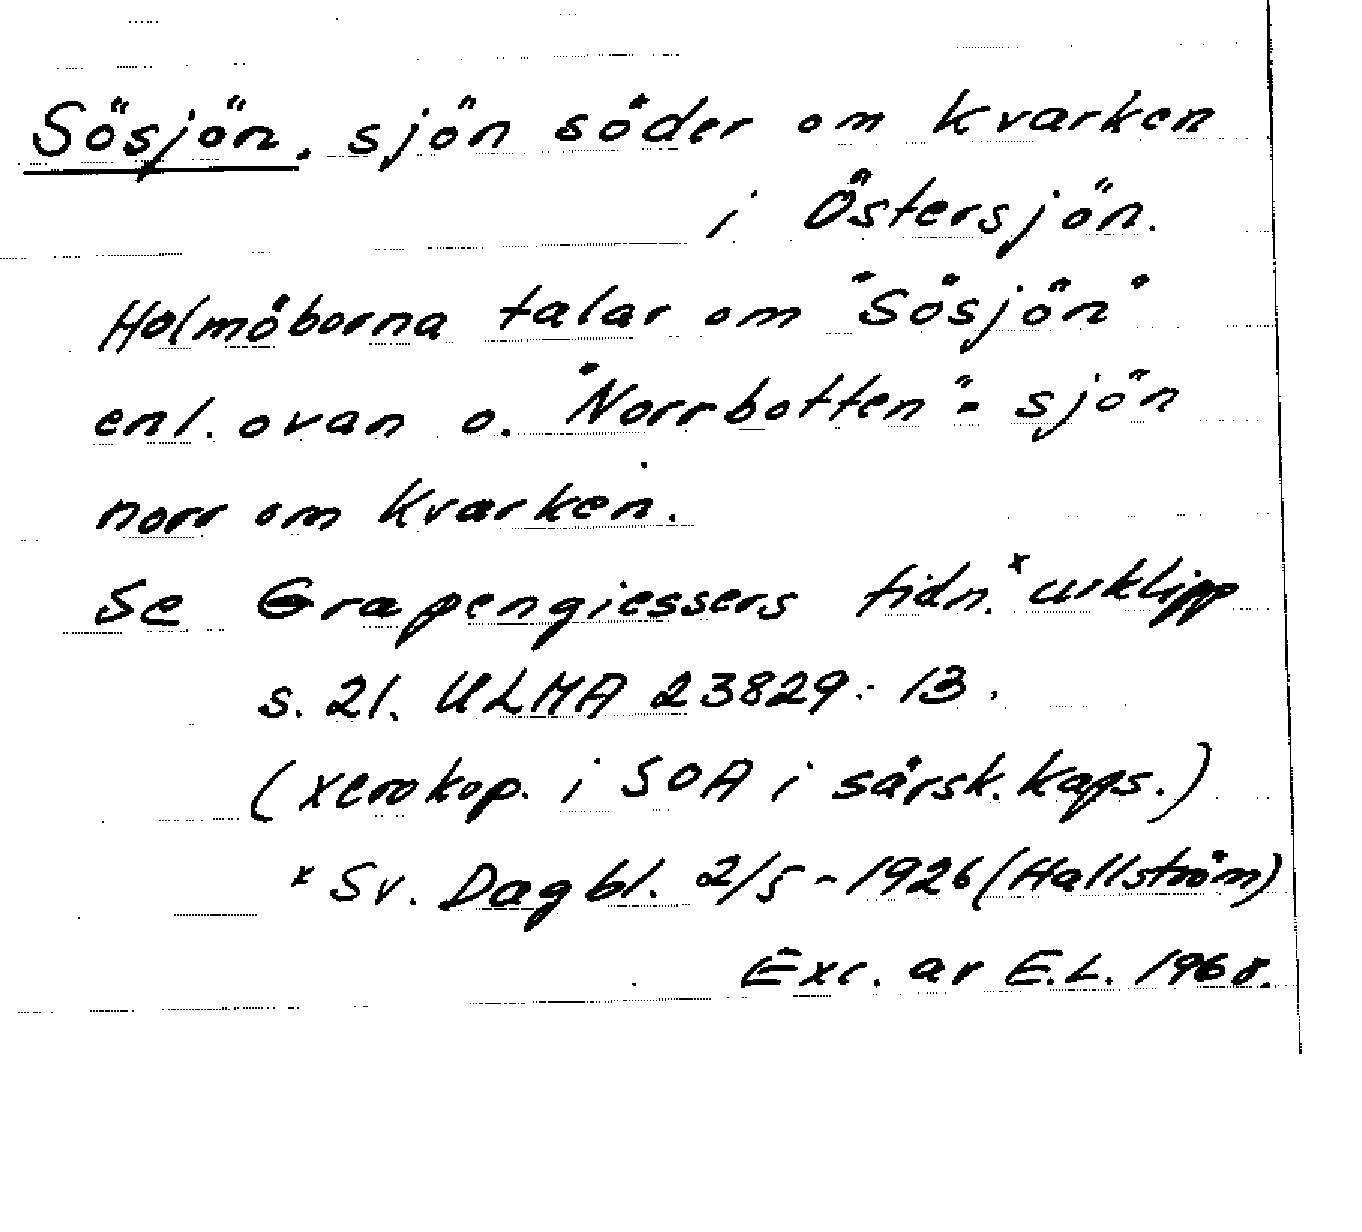 Sösjön. sjön söder om Kvarken
i Östersjön.
Holmöborna talar om "Sösjön"
enl. ovan o. "Norrbotten" = sjön
norr om Kvarken.
Se Grapengiessers tidn.x urklipp
s. 21. ULMA 23829:13.
(xerokop. i SOA i särsk. kaps.)
x Sv. Dagbl. 2/5 - 1926 (Hallström)
Exc. av E.L. 1968.